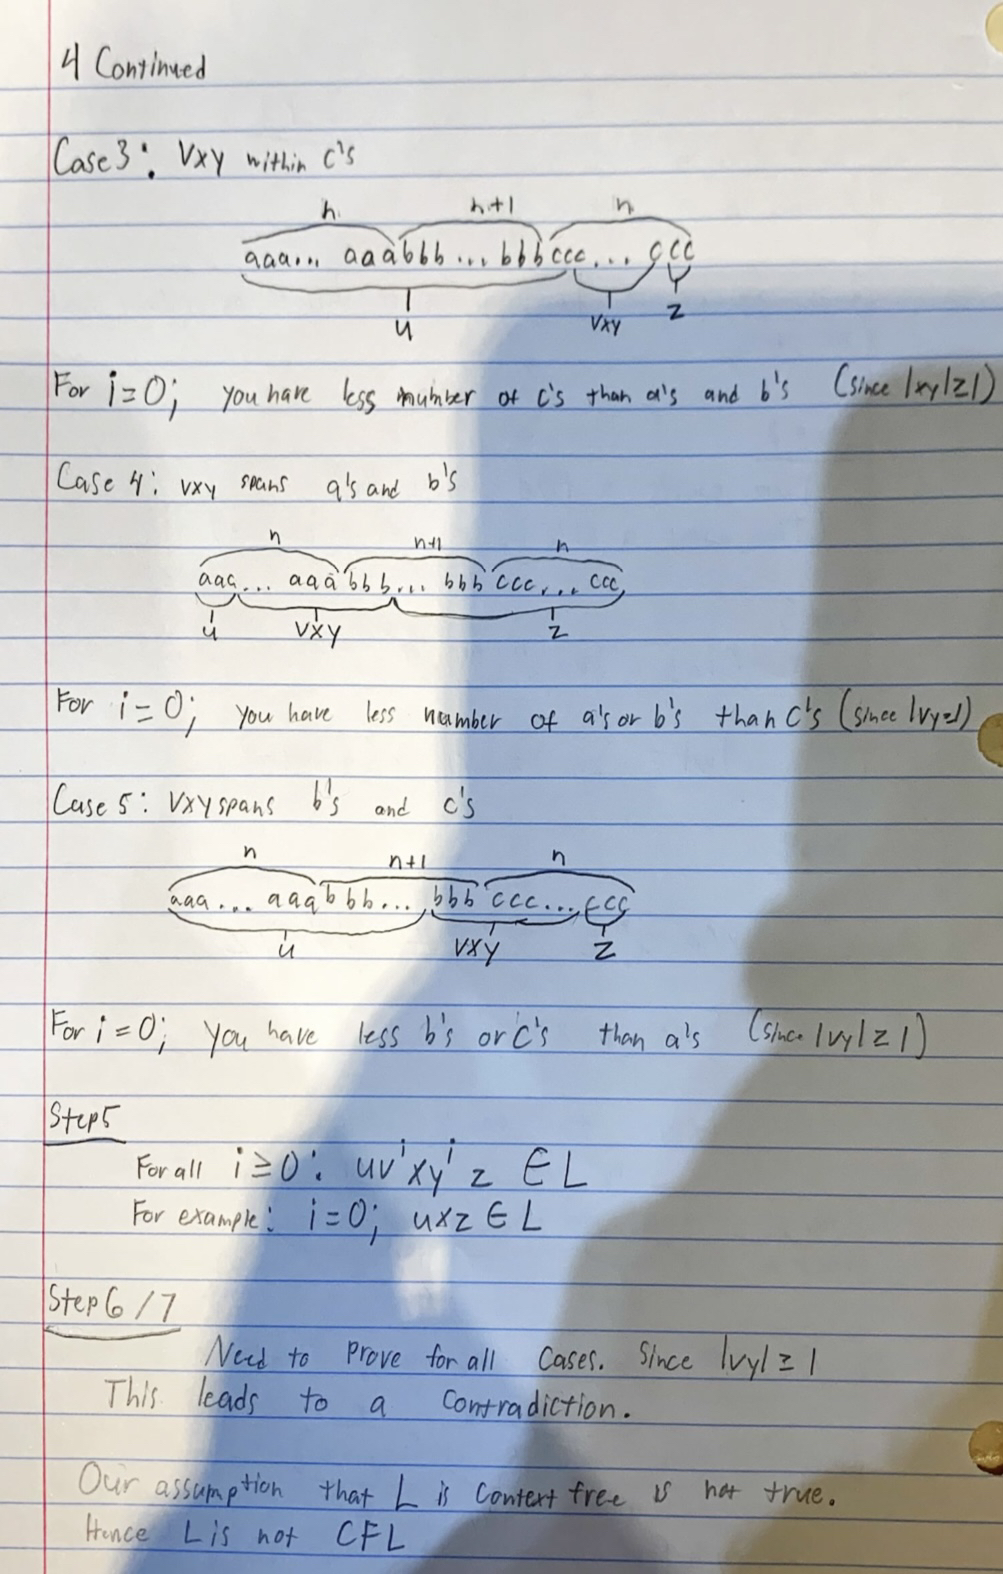 4 Continued
Case 3: Vxy within c's
n n+1 n
aaa... aaabbb...bbbccc... ccc
u vxy z
For i=0; you have less number of c's than a's and b's (since |xy|≥1)
Case 4: vxy spans a's and b's
n n+1 n
aaa... aaabbb... bbbccc... ccc
u vxy z
For i=0; you have less number of a's or b's than c's (since |vy≥1)
Case 5: vxy spans b's and c's
n n+1 n
aaa... aaabbb... bbbccc...ccc
u vxy z
For i=0; you have less b's or c's than a's (since |vy|≥1)
Step5
For all i≥0: uvⁱxyⁱz ∈ L
For example: i=0; uxz ∈ L
Step 6/7
Need to prove for all cases. Since |vy|≥1
This leads to a contradiction.
Our assumption that L is context free is not true.
Hence L is not CFL